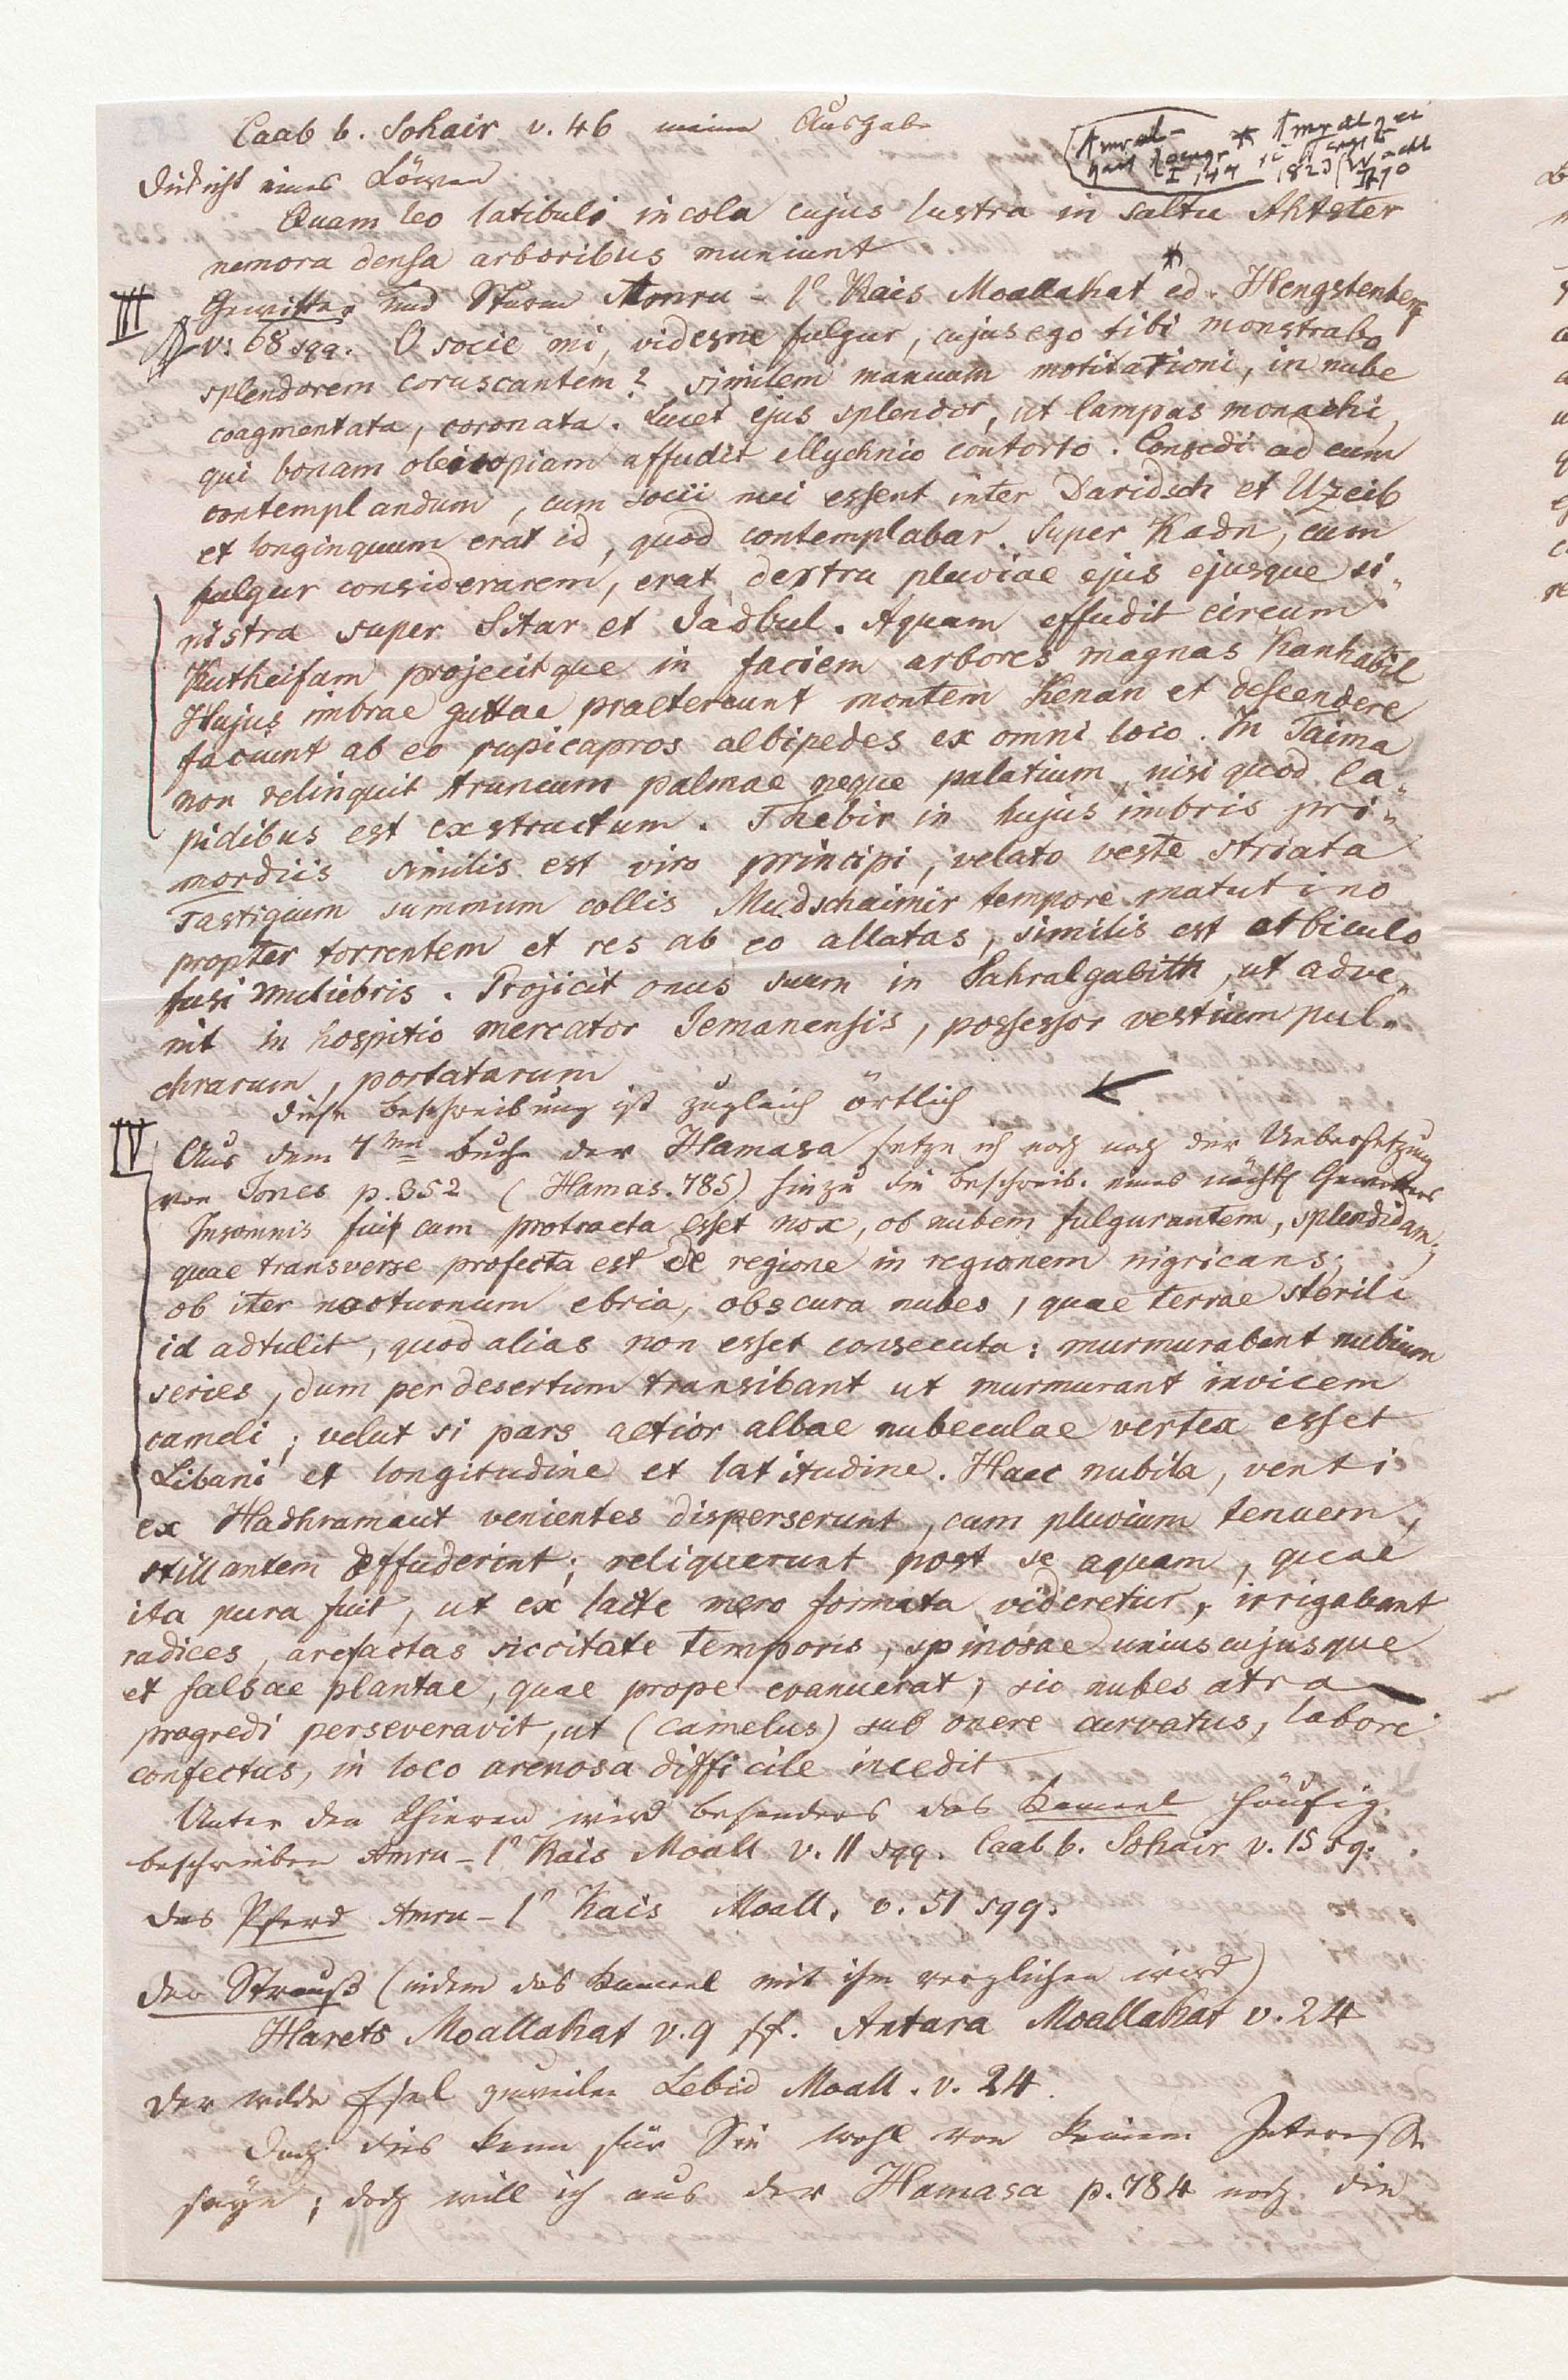 Caab b. Sohair v. 46 meiner Ausgabe
Dickicht eines Löwen
Quam leo latibuli incola cujus lustra in saltu Ahtster
nemora densa arboribus muniunt
III Gewitter und Sturm Amru-l' Kais Moallakat * ed. Hengstenberg
v. 68 sqq. O socie mi, videsne fulgur, cujus ego tibi monstrabo
splendorem coruscantem? similem manuum motitationi, in nube
coagmentata, coronata. Lucet ejus splendor, ut lampas monachi,
qui bonam olei copiam affudit ellychnio contorto. Consedi ad eum
contemplandum, cum socii mei essent inter Daridsch et Uzeib
et longinquum erat id, quod contemplabar. Super Kadn, cum
fulgur considerarem, erat dextra pluviae ejus ejusque si-
nistra super Sitar et Jadbul. Aquam effudit circum
Kutheifam projecitque in faciem arbores magnas Kanhabil
Hujus imbrae guttae praetereunt montem Kenan et descendere
faciunt ab eo rupicapros albipedes ex omni loco. In Taima
non relinquit truncum palmae neque palatium, nisi quod la-
pidibus est exstructum. Thebir in hujus imbris pri-
mordiis similis est viro principi, velato veste striata
Fastigium summum collis Mudschaimir tempore matutino
propter torrentem et res ab eo allatas, similis est orbiculo
fusi muliebris. Projicit onus suum in Sahralgabith, ut adve-
nit in hospitio mercator Jemanensis, possessor vestium pul-
chrarum, portatarum
Diese Beschreibung ist zugleich örtlich
IV Aus dem 7ten Buche der Hamasa setze ich noch nach der Uebersetzung
von Jones p. 352 (Hamas. 785) hinzu die Beschreib. eines nächtl Gewitters
Insomnis fuit cum protracta esset nox, ob nubem fulgurantem, splendidam;
quae transverse profecta est de regione in regionem nigricans;
ob iter nocturnum ebria, obscura nubes, quae terrae sterili
id adtulit, quod alias non esset consecuta: murmurabant nubium
series, dum per desertum transibant ut murmurant invicem
cameli; velut si pars altior albae nubeculae vertex esset
Libani et longitudine et latitudine. Haec nubila, venti
ex Hadhramaut venientes disperserunt, cum pluvium tenuem,
stillantem effuderint; reliquerunt post se aquam, quae
ita pura fuit, ut ex lacte mero formata videretur, irrigabant
radices, arefactas siccitate temporis, spinosae uniuscujusque
et salsae plantae, quae prope evanuerat, sic nubes atra
progredi perseveravit, ut (camelus) sub onere curvatus, labore
confectus, in loco arenosa difficile incedit
Unter den Thieren wird besonders das Kameel häufig
beschrieben Amru-l' Kais Moall v. 11 sqq. Caab b. Sohair v. 15 sq.
das Pferd Amru-l' Kais Moall. v. 51 sqq.
der Strauß (indem das Kameel mit ihm verglichen wird)
Harets Moallakat v. 9 ff. Antara Moallakat v. 24
der wilde Esel zuweilen Lebid Moall. v. 24.
Doch dies kann für Sie wohl von keinem Interesse
seyn; doch will ich aus der Hamasa p. 784 noch die